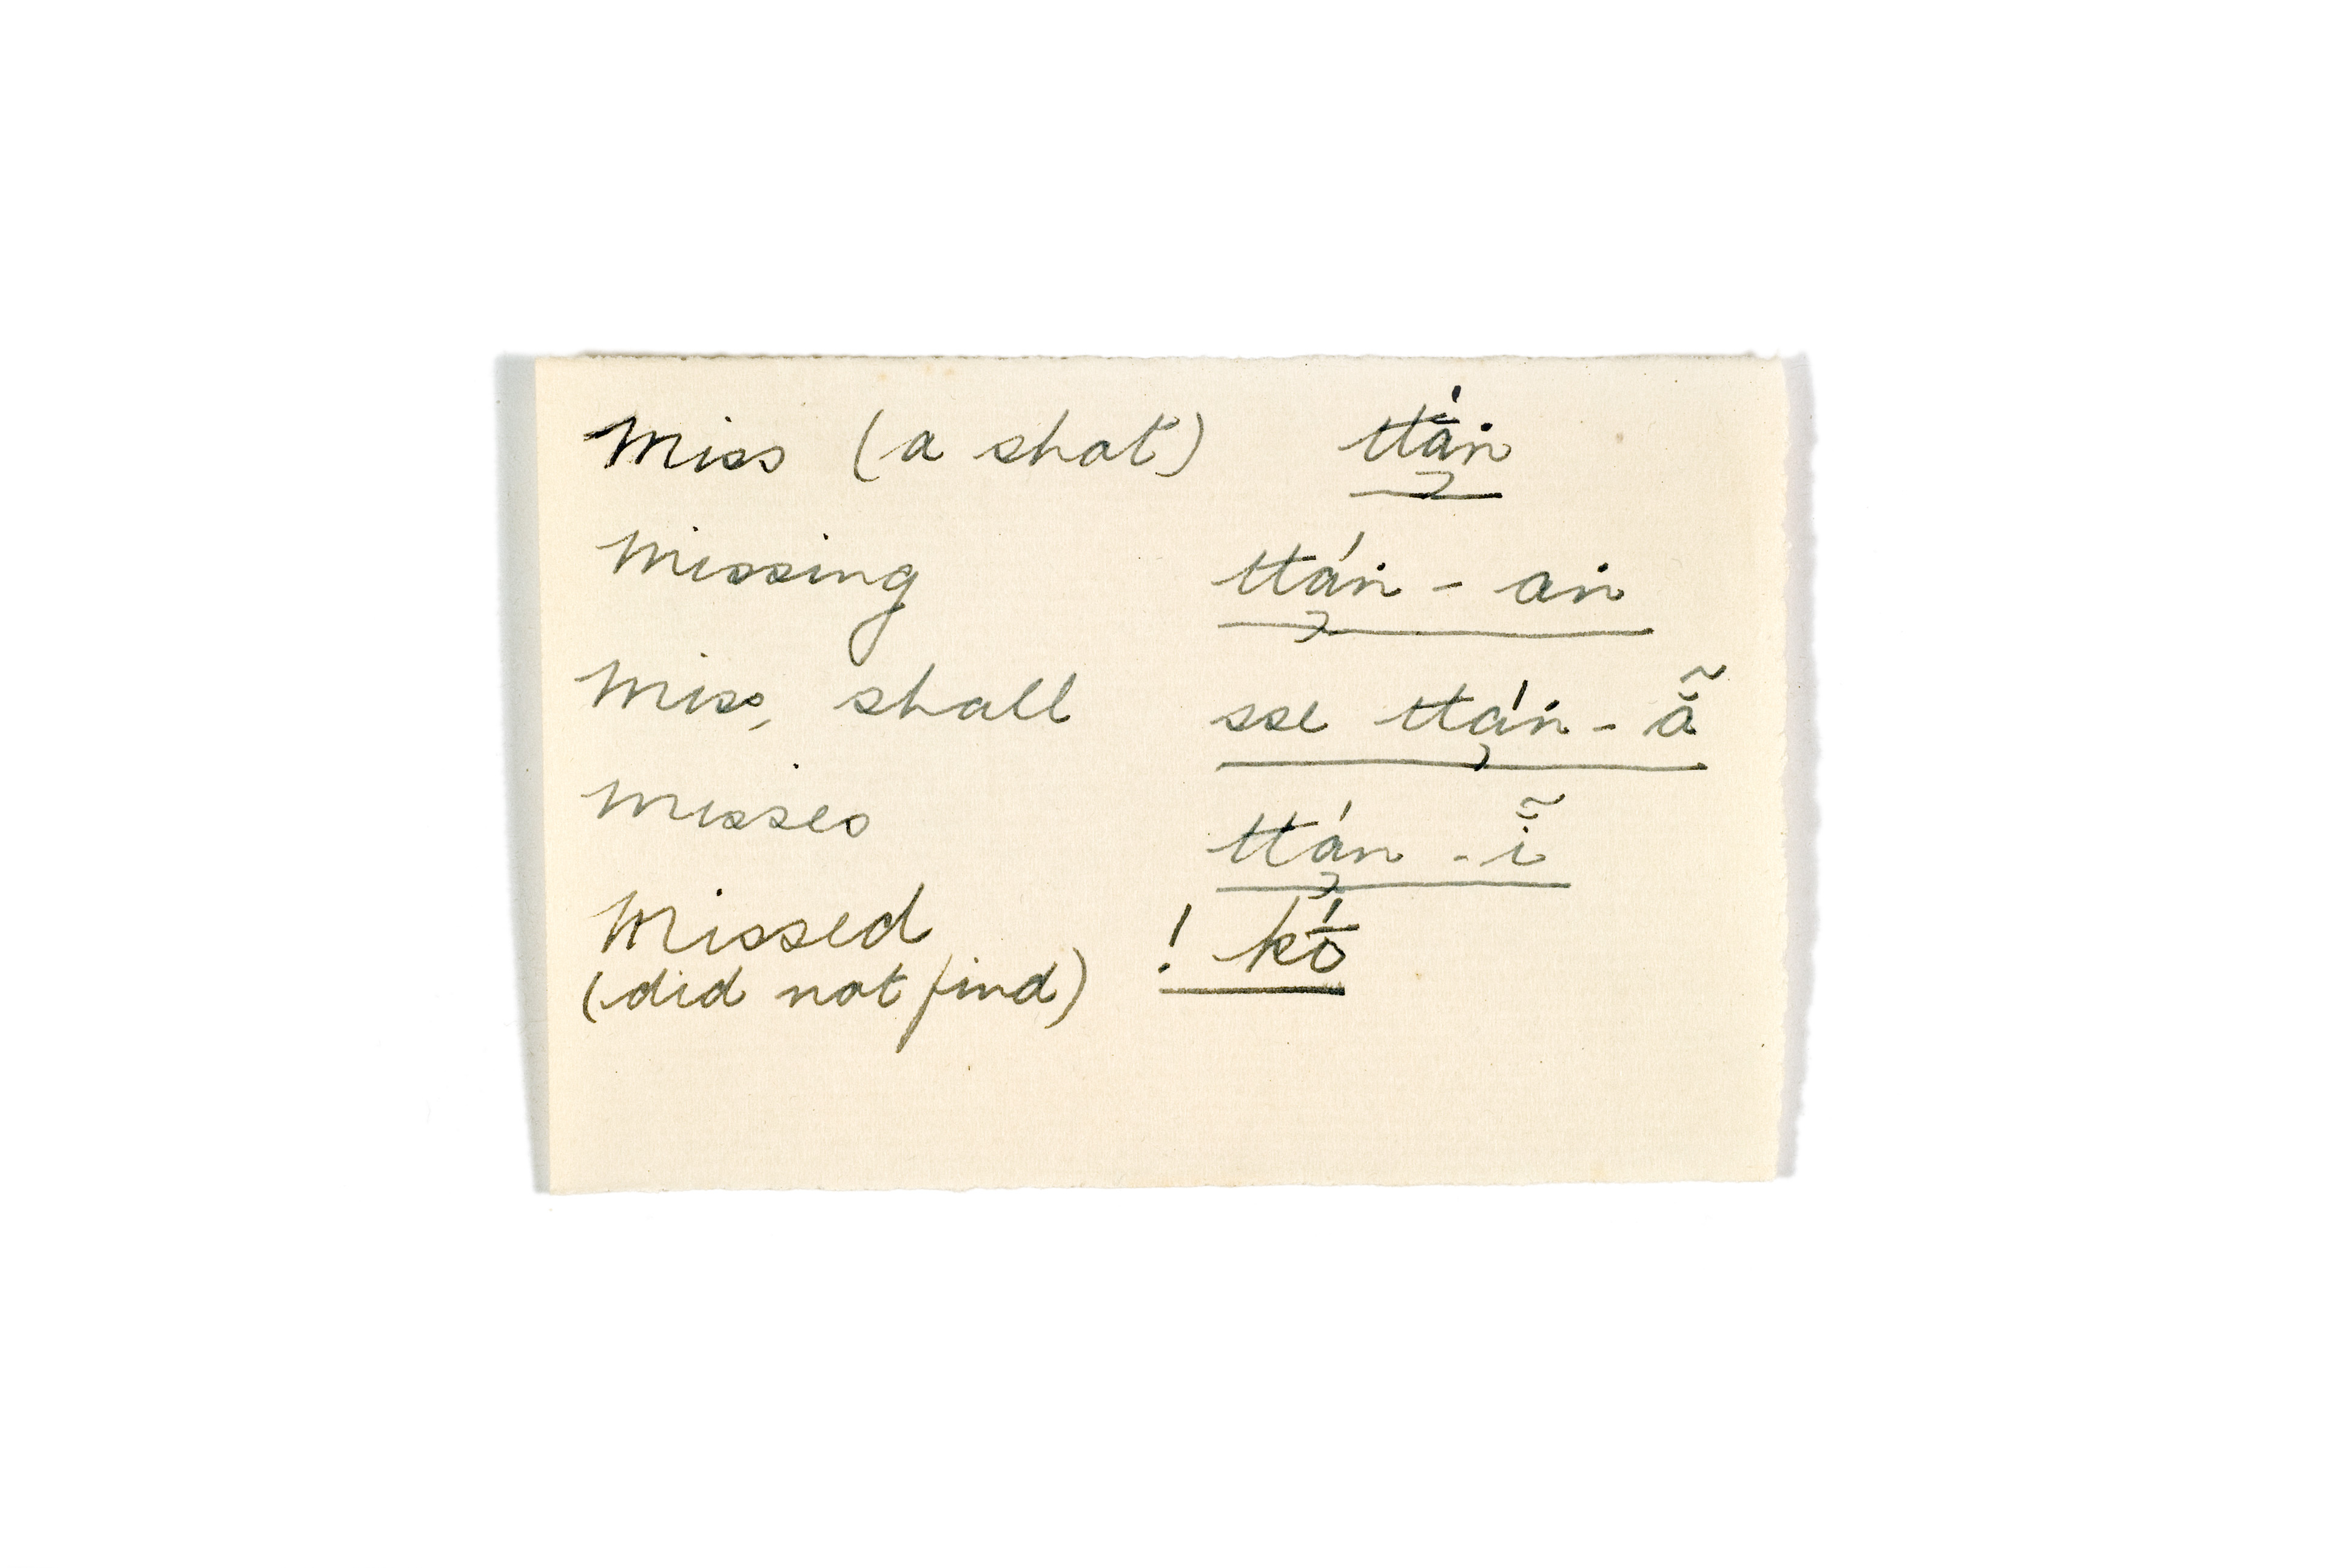 Miss (a shot) ttą́ṅ
Missing ttą́ṅ - aṅ
Miss, shall sse ttą́ṅ - ã̆
Misses ttą́ṅ - ĩ̆
Missed ! kṓ
(did not find)